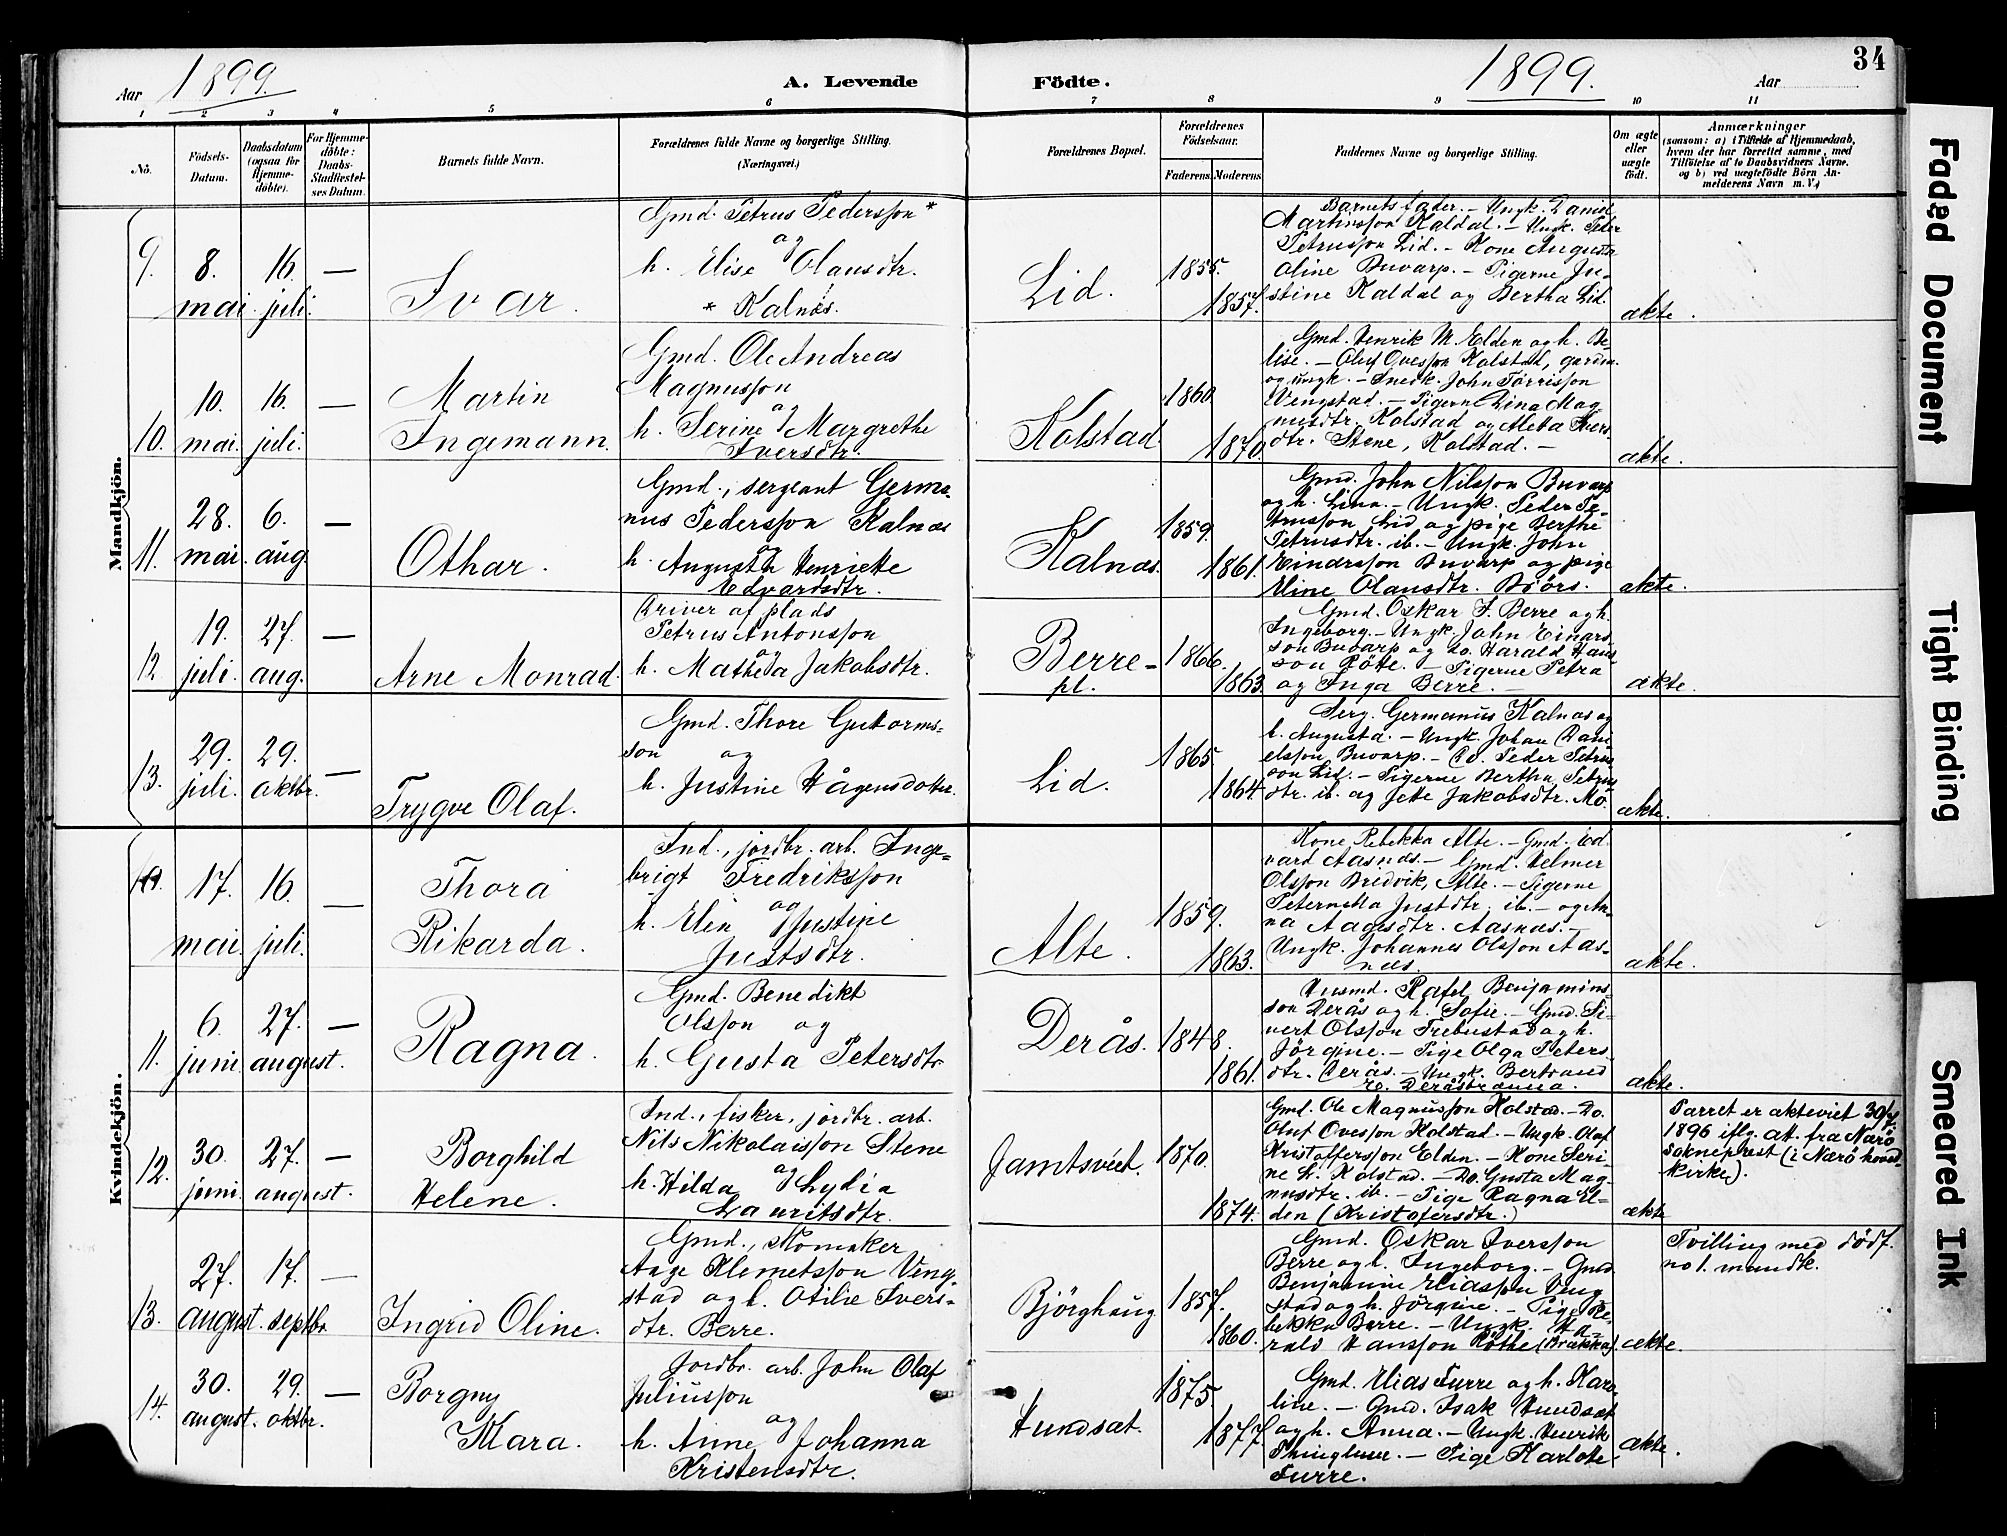 Aar 1899. A. Levende Födte. 1899. Aar 34
1 2 3 4 5 6 7 8 9 10 11
No.
Födsels-
Datum.
Daabsdatum
(ogsaa for
Hjemme-
döbte).
For Hjemme-
döbte:
Daabs-
Stadfæstel-
ses Datum.
Barnets fulde Navn.
Forældrenes fulde Navne og borgerlige Stilling.
(Næringsvei.)
Forældrenes Bopæl.
Forældrenes
Födselsaar.
Faderens. Moderens.
Faddernes Navne og borgerlige Stilling.
Om ægte
eller
uægte
födt.
Anmærkninger
(saasom: a) i Tilfælde af Hjemmedaab,
hvem der har forrettet samme, med
Tilföielse af to Daabsvidners Navne.
og b) ved uægtefödte Börn An-
melderens Navn m. V.)
Mandkjön.
9. 8. mai. 16. juli. —
Ivar.
Gmd. Petrus Pedersson *
og
h. Elise Olausdtr.
* Kalnes.
Lid.
1855.
1857.
Barnets fader. – Ungk. Daniel
Martinsson Kaldal. – Ungk. Peder
Petrusson Lid. – Kone Augusta
Oline Buvarp. – Pigerne Ju-
stine Kaldal og Bertha Lid.
ækte.
10. 10. mai. 16. juli. —
Martin
Ingemann.
Gmd. Ole Andreas
Magnusson
og
h. Serine Margrethe
Iversdtr.
Kolstad
1860.
1870.
Gmd. Henrik M. Elden og h. 
lise. – Oluf Ovesson Kolstad, gardm.
og ungk. – Snedk. John Tørrisson
Vengstad. – Pigerne Lina Mag-
nusdtr. Kolstad og Aleta Ivers-
dtr. Stene, Kolstad. –
ækte.
11. 28. mai. 6. aug. —
Othar.
Gmd., sergeant Germa-
nus Pedersson Kalnes
og
h. Augusta Henriette
Edvardsdtr.
Kalnes.
1859.
1861.
Gmd. John Nilsson Buvarp
og h. Lina. – Ungk. Peder Pe-
trusson Lid og pige Berthe
Petrusdtr. ib. – Ungk. John
Einarsson Buvarp og pige
Eline Olausdtr. Bøörs.
ækte.
12 19. juli. 27. aug. —
Arne Monrad.
Driver af plads
Petrus Antonsson
og
h. Mathea Jakobsdtr.
Berre-
pl.
1866.
1863.
Gmd. Oskar I. Berre og h.
Ingeborg. – Ungk. John Einars-
son Buvarp og do. Harald Hans-
son Röte. – Pigerne Petra
og Inga Berre. –
ækte.
13. 29. juli. 29. oktbr. —
Trygve Olaf.
Gmd. Thore Guttorms-
son og
h. Justine Hågensdatter.
Lid.
1865.
1864.
Serg. Germanus Kalnes og
h. Augusta. – Ungk. Johan Dani-
elsson Buvarp. – Do. Peder Petrus-
son Lid. – Pigerne Bertha Petrus-
dtr. ib. og Jette Jakobsdtr. Mo.
ækte.
Kvindekjön.
10. 17. mai. 16 juli. —
Thora
Rikarda.
Ind., jordbr. arb. Inge-
brigt Fredriksson
og
h. Elen Justine
Justsdtr.
Alte.
1859.
1863.
Kone Rebekka Alte. – Gmd. Ed-
vard Aasnes. – Gmd. Helmer
Olsson Bredvik, Alte. – Pigerne
Peternella Justdtr. ib. – og An-
na Aagesdtr. Aasnes. –
Ungk. Johannes Olsson Aas-
nes.
ækte.
11. 6. juni. 27. august. —
Ragna.
Gmd. Benedikt
Olsson og
h. Gusta Petersdtr.
Derås.
1848.
1861.
Husmd. Rafel Benjamins-
son Derås og h. Sofie. – Gmd. Si-
vert Olsson Trebustad og h.
Jörgine. – Pige Olga Peters-
dtr. Derås. – Ungk. Bertrand
E. Deråsbrænna.
ækte.
12. 30. juni. 27. august. —
Borghild
Helene.
Ind., fisker, jordbr. arb.
Nils Nikolaisson Stene
og
h. Hilda Lydia
Lauritsdtr.
Jamtsveet.
1870.
1874.
Gmd. Ole Magnusson Kolstad. – Do.
Oluf Ovesson Kolstad. – Ungk. Olaf
Kristoffersson Elden. – Kone Seri-
ne L. Kolstad. – Do. Gusta Mag-
nusdtr. ib. – Pige Ragna El-
den (Kristofersdtr.)
ækte
Parret er ækteviet 30/7.
1896 iflg. att. fra Nærö
sokneprest (i Nærö hoved-
kirke).
13. 27. august. 17. septbr. —
Ingrid Oline.
Gmd., skomaker
Aage Klemetsson Veng-
stad og h. Otilie Ivers-
dtr. Berre.
Björghaug
1857.
1860.
Gmd. Oskar Iversson
Berre og h. Ingeborg. – Gmd.
Benjamine Eliasson Veng-
stad og h. Jörgine. – Pige Re-
bekka Berre. – Ungk. Ha-
rald Hansson Röthe (Brækka).
ækte.
Tvilling med dödf.
no 1. mandk.
14. 30. august. 29. oktbr. —
Borgny
Klara.
Jordbr. arb. John Olaf
Juliusson
og
h. Anne Johanna
Kristensdtr.
Hundsæt.
1875.
1877.
Gmd. Elias Furre og h. Karo-
line. – Gmd. Isak Hundsæt
og h. Anna. – Ungk. Henrik
– Pige Karlotte
Furre.
ækte.
Faded Document
Tight Binding
Smeared Ink